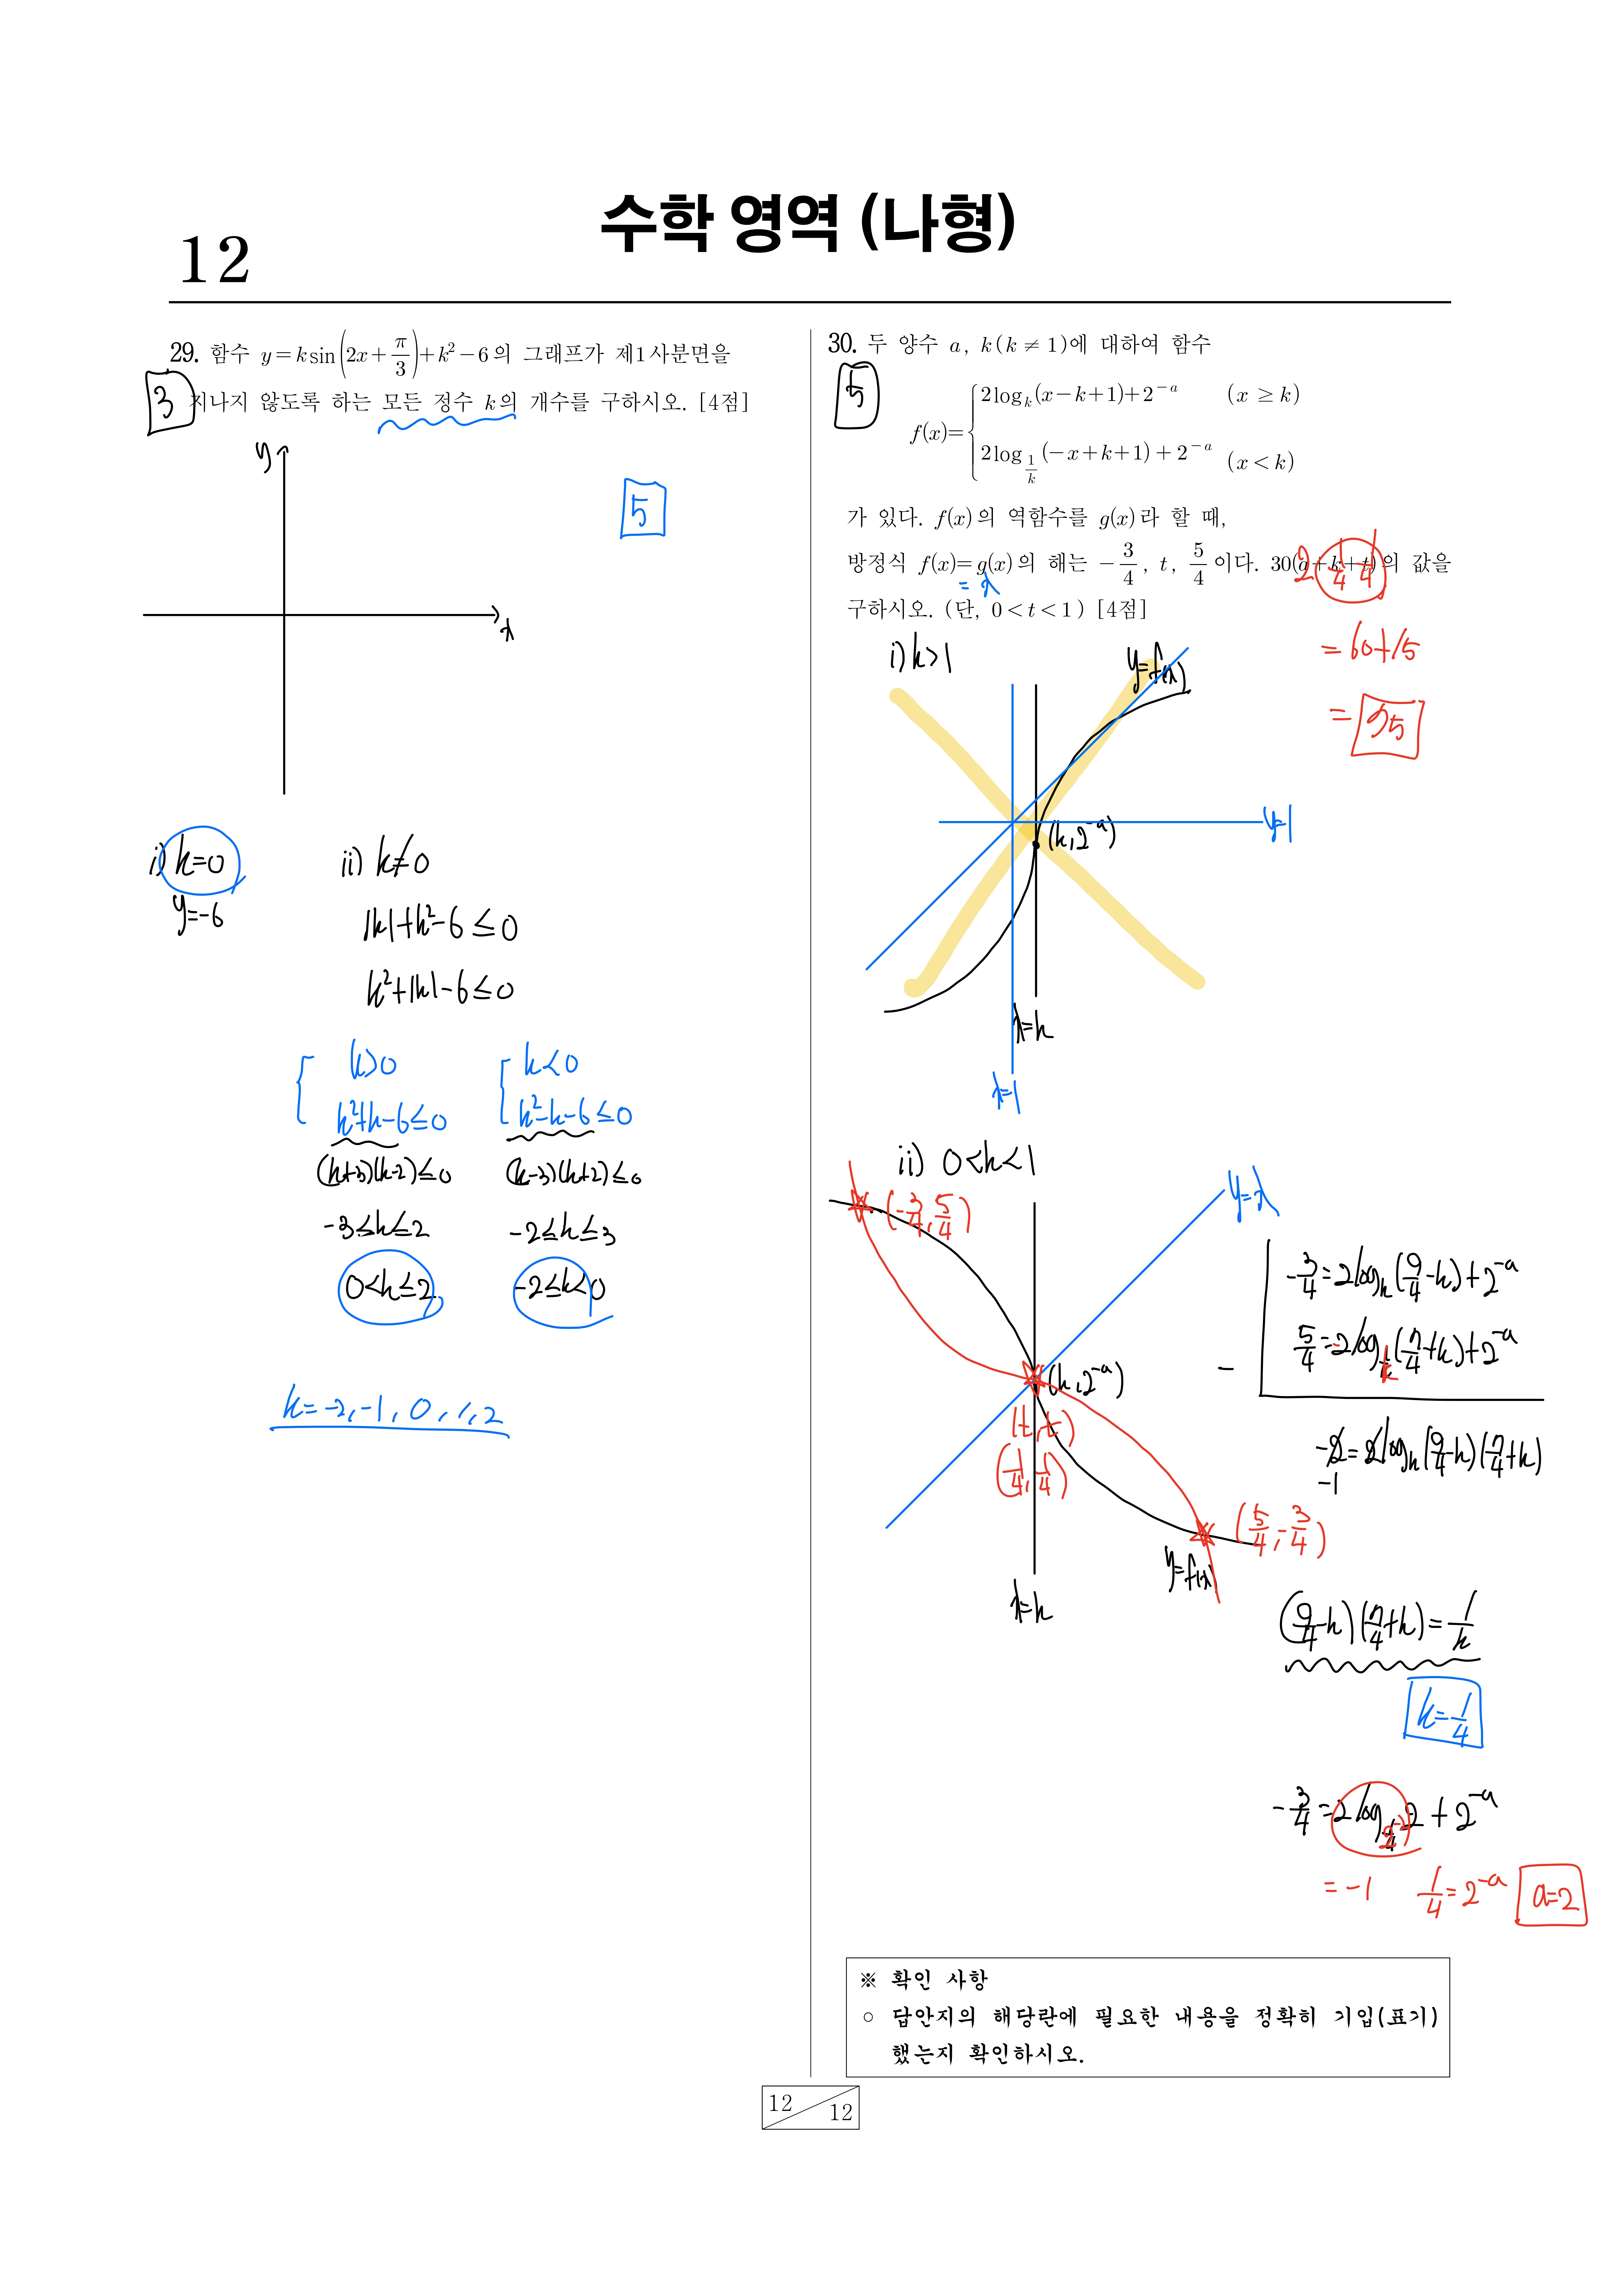 수학 영역 (나형)
12
29. 함수 y=k sin(2x+π/3)+k²-6의 그래프가 제1사분면을
지나지 않도록 하는 모든 정수 k의 개수를 구하시오. [4점]
3
y
x
5
i) k=0
y=-6
ii) k≠0
|k|+k²-6≤0
k²+|k|-6≤0
k>0
k²+k-6≤0
(k+3)(k-2)≤0
-3≤k≤2
0<k≤2
k<0
k²-k-6≤0
(k-3)(k+2)≤0
-2≤k≤3
-2≤k<0
k=-2, -1, 0, 1, 2
30. 두 양수 a, k(k≠1)에 대하여 함수
5
f(x)={ 2log_k(x-k+1)+2^(-a) (x ≥ k)
2log_(1/k)(-x+k+1)+2^(-a) (x<k)
가 있다. f(x)의 역함수를 g(x)라 할 때,
방정식 f(x)=g(x)의 해는 -3/4, t, 5/4이다. 30(a+k+t)의 값을
= x
2 1/4 1/4
구하시오. (단, 0<t<1) [4점]
= 60+15
= 75
i) k>1
y=f(x)
y=1
(k, 2^(-a))
x=k
x=1
ii) 0<k<1
y=x
(-3/4, 5/4)
(k, 2^(-a))
(t, t)
(1/4, 1/4)
(5/4, -3/4)
y=f(x)
x=k
-3/4=2log_k(9/4-k)+2^(-a)
5/4=-2log_k(7/4+k)+2^(-a)
-
-2=2log_k(9/4-k)(7/4+k)
-1
(9/4-k)(7/4+k)=1/k
k=1/4
-3/4=2log_(1/4)2+2^(-a)
2^(-2)
=-1 1/4=2^(-a) a=2
※ 확인 사항
○ 답안지의 해당란에 필요한 내용을 정확히 기입(표기)
했는지 확인하시오.
12 12